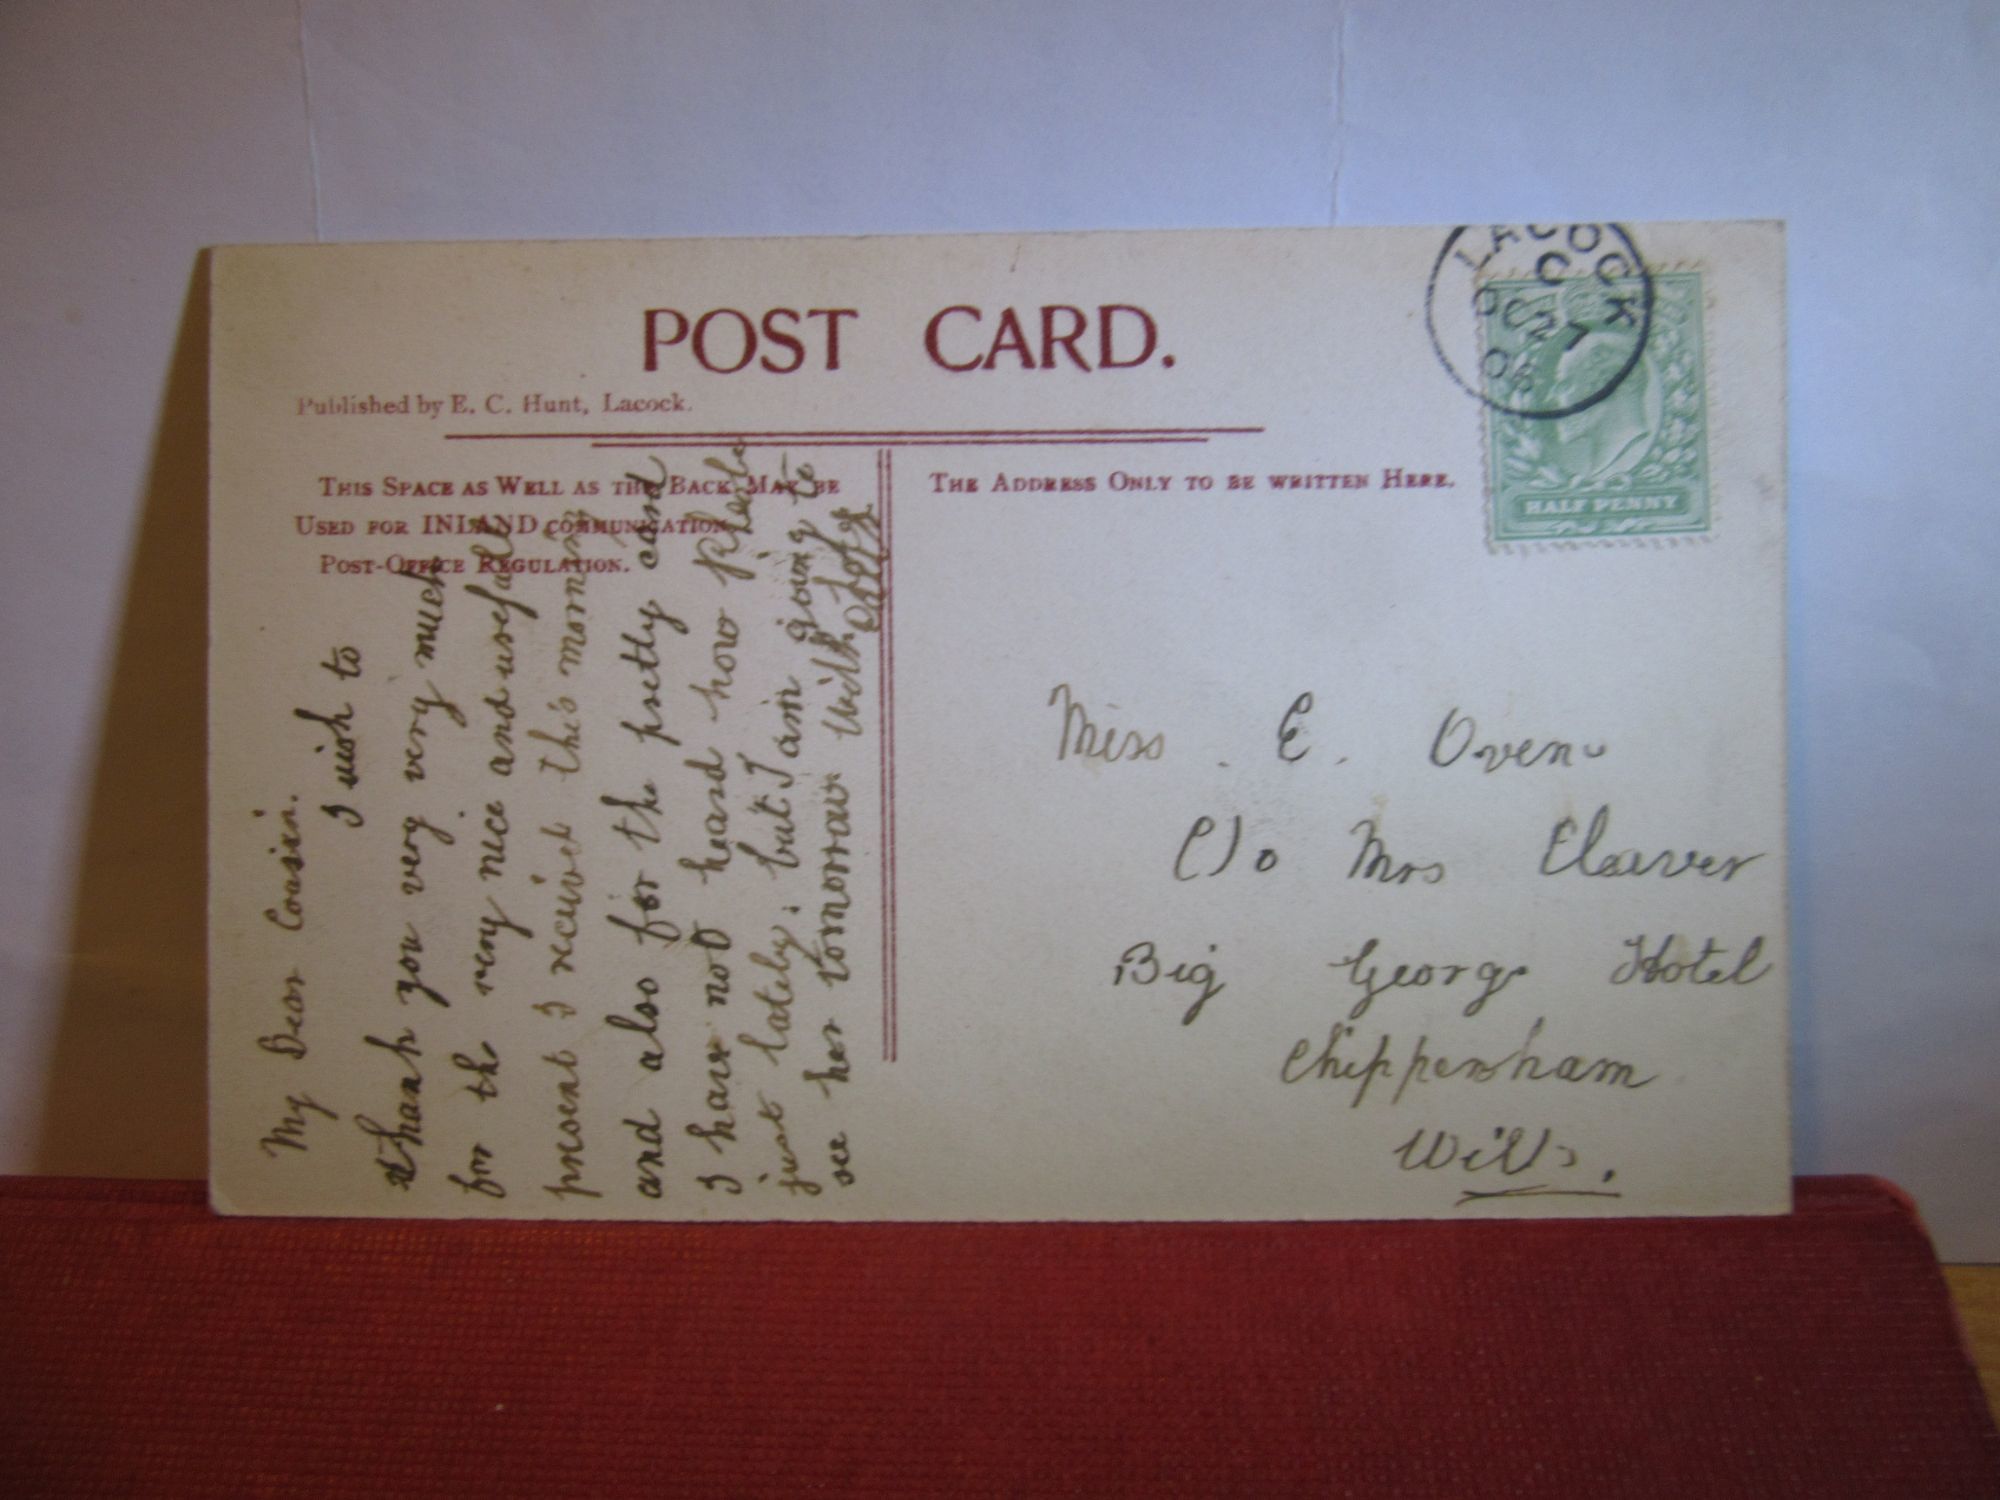 POST CARD.
Published by E. C. Hunt, Lacock.
THIS SPACE AS WELL AS THE BACK MAY BE
USED FOR INLAND COMMUNICATION
POST-OFFICE REGULATION.
THE ADDRESS ONLY TO BE WRITTEN HERE.
LACOCK
OC 27
08
HALF PENNY
My Dear Cousin.
I wish to
thank you very very much
for the very nice and usefull
present I recived this morning
and also for the pretty card
I have not heard how Phebe
just lately; but I am going to
see her tomorrow with love
Miss. E. Oven
C/o Mrs Cleaver
Big George Hotel
Chippenham
Wilts.